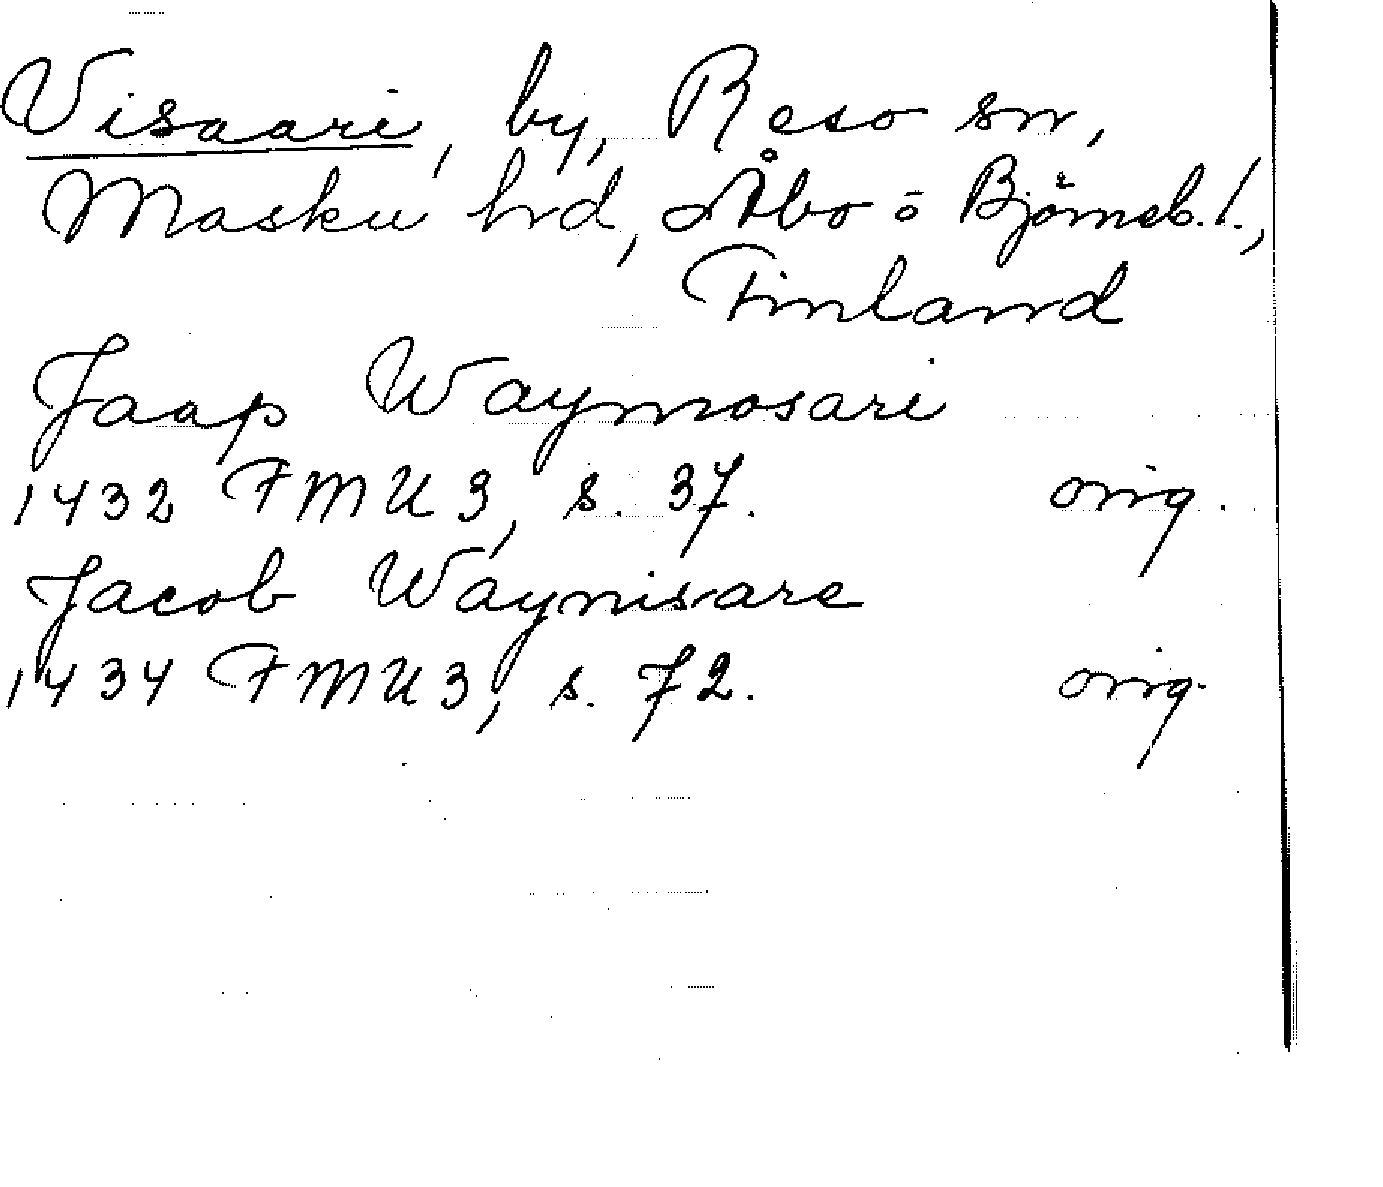 Visaari, by, Reso sn,
Masku hd, Åbo o Björneb. l.,
Finland
Jaap Waynosari
1432 FMU 3, s. 37. orig.
Jacob Waynisare
1434 FMU 3, s. 72. orig.